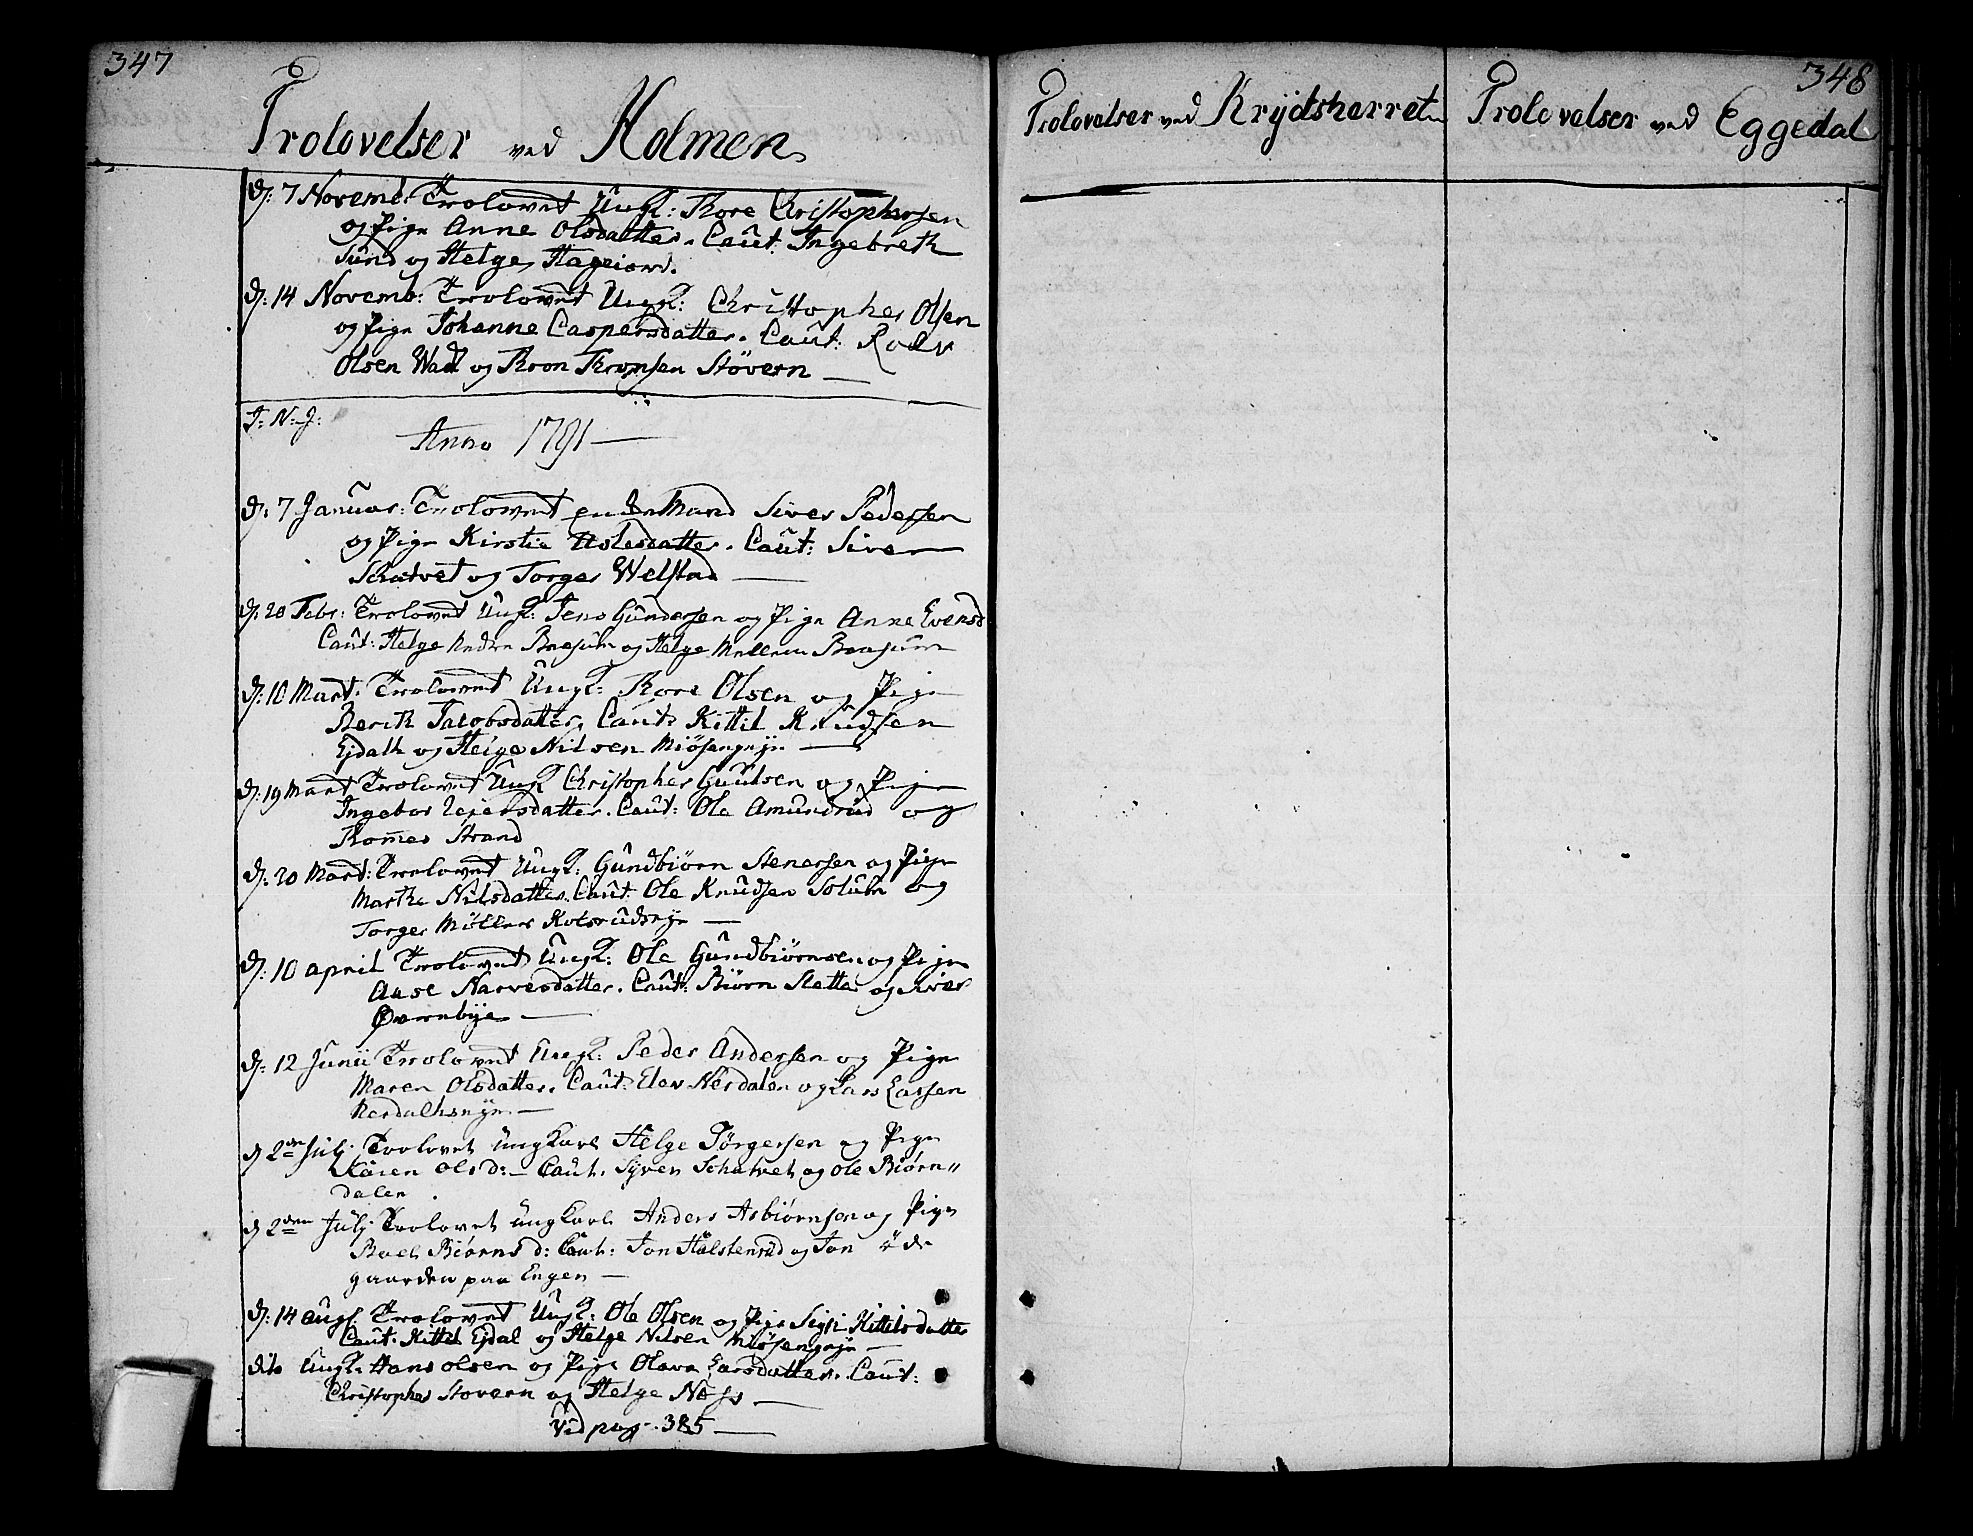 347
Trolovelser ved Holmen
D: 7 Novembr Trolovet Ungk: Thore Christophersen
og Pige Anne Olsdatter. Caut: Ingebreth
Sund og Helge Hageiord.
D: 14 Novemb: Trolovet Ungk: Christopher Olsen
og Pige Johanne Caspersdatter. Caut: Roer
Olsen Wad og Thron Thronsen Støvern
I: N: J:
Anno 1791
D: 7 Januar: Trolovet Siver Pedersen
og Pige Kirstie Aslesdatter. Caut: Siver
Schatvet og Torger Welstad
D: 20 Febr: Trolovet Ungk: Jens Gundersen og Pige Anne Evensd
Caut: Helge Nedre Braesum og Helge Mellem Braesum
D: 10 Mart. Trolovet Ungk: Thore Olsen og Pige
Berith Jacobsdatter. Caut: Kittil Knudsen
Ejdalh og Helge Nilsen Miøsengeje
D: 19 Mart Trolovet Ungk Christopher Guulsen og Pige
Ingebor Lejersdatter. Caut: Ole Amundrud og
Thomes Strand
D: 20 Mart: Trolovet Ungk: Gundbiørn Stenersen og Pige
Marthe Nilsdatter. Caut: Ole Knudsen Solum og
Torger Møller Kolsrudseje
D: 10 April Trolovet Ungk: Ole Gundbiørnsen og Pige
Aase Narvesdatter. Caut: Biørn Sletta og Siver
Øvernbye
D: 12 Junii Trolovet Ungk: Peder Andersen og Pige
Maren Olsdatter. Caut: Elev Nerdalen og Lars Larsen
Nerdalhseje
D 2den Julj. Trolovet Ungkarl Helge Jørgersen og Pige
Karen Olsd: Caut. Syver Schatvet og Ole Biørn"
dalen
D 2den Julj Trolovet Ungkarl Anders Asbiørnsen og Pige
Boel Biørns d: Caut: Jon Halstensrud og Jon øde
gaarden paa Engen
D: 14 Aug. Trolovet Ungk: Ole Olsen og Pige Sigri Kittilsdatter
Caut. Kittil Ejdal og Helge Nilsen Miøsengeje
dito Ungk: Hans Olsen og Pige Olava Larsdatter. Caut:
Christopher Stovern og Helge Næss
Vid pag. 385
Trolovelser ved Krydsherret
348
Trolovelser ved Eggedal